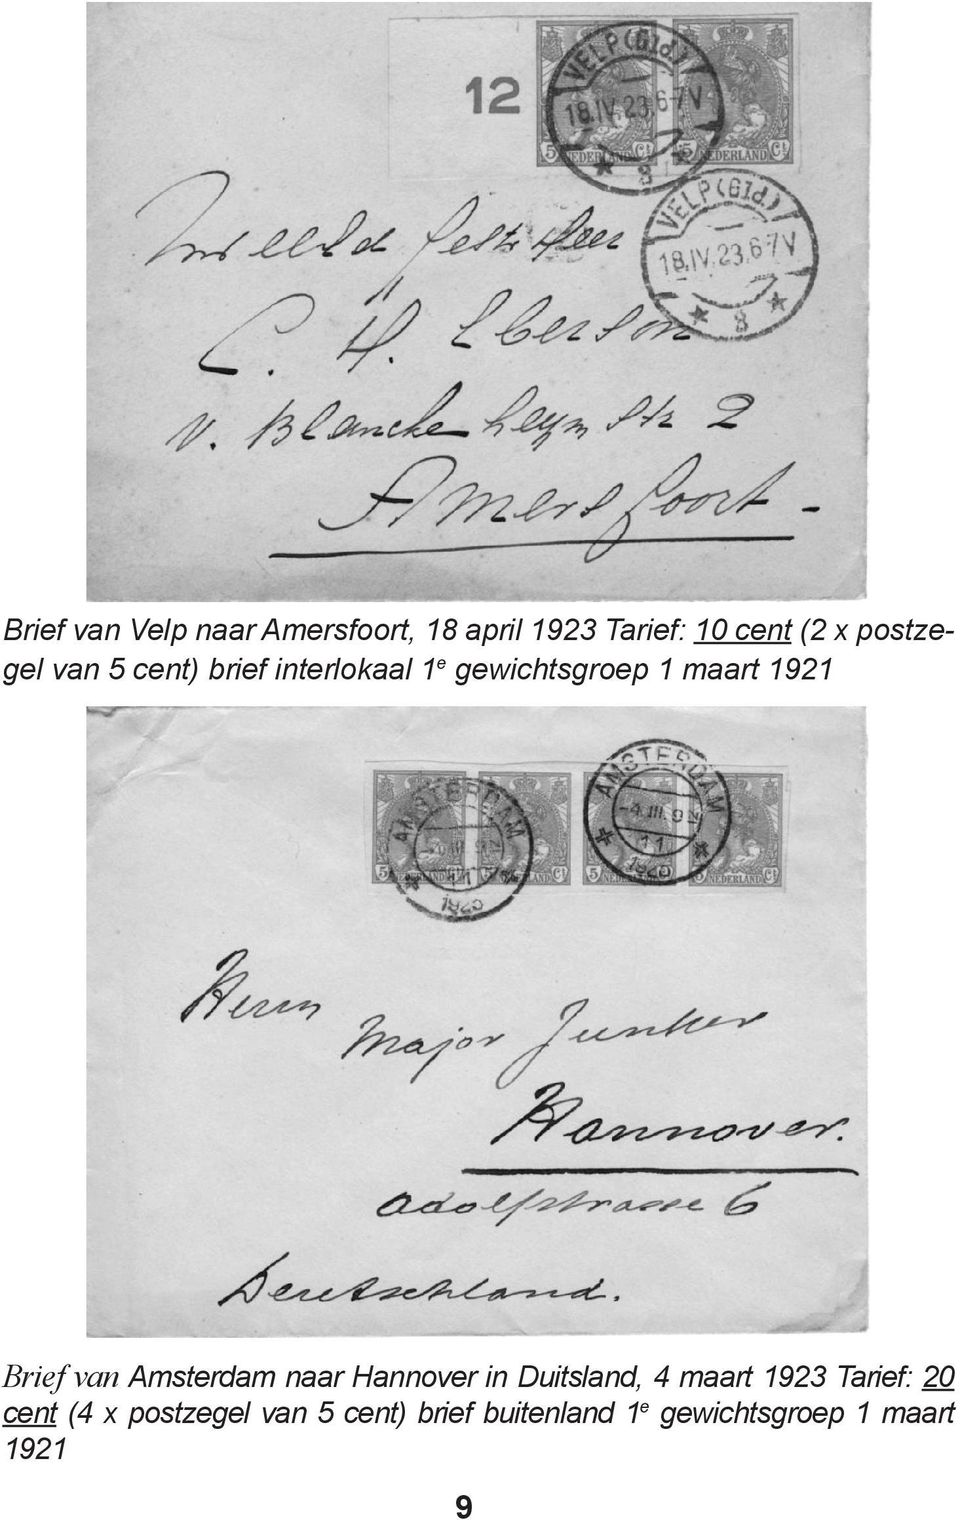 12
VELP (Gld.)
18.IV.23.6-7V
8
5 NEDERLAND Ct
5 NEDERLAND Ct
VELP (Gld.)
18.IV.23.6-7V
8
Heer
C. H. Eberson
v. Blanckenheymstr 2
Amersfoort -
Brief van Velp naar Amersfoort, 18 april 1923 Tarief: 10 cent (2 x postze-
gel van 5 cent) brief interlokaal 1e gewichtsgroep 1 maart 1921
AMSTERDAM
11
AMSTERDAM
-4.III. 9
11
5 NEDERLAND Ct
5 NEDERLAND Ct
5 NEDERLAND Ct
5 NEDERLAND Ct
Herrn
Major Junker
Hannover.
Adolfstrasse 6
Deutschland.
Brief van Amsterdam naar Hannover in Duitsland, 4 maart 1923 Tarief: 20
cent (4 x postzegel van 5 cent) brief buitenland 1e gewichtsgroep 1 maart
1921
9